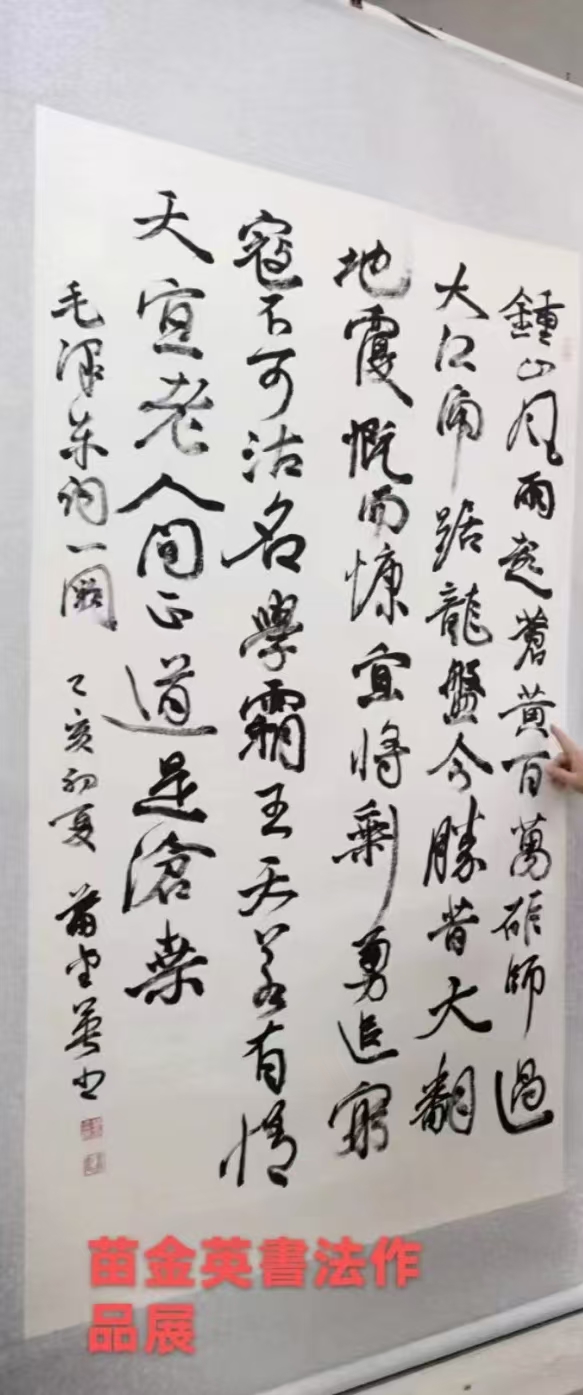 鍾山风雨起蒼黄百萬雄師過
大江虎踞龍盤今勝昔天翻
地覆慨而慷宜将剩勇追窮
寇不可沽名學霸王天若有情
天宜老人间正道是滄桑
毛澤东词一阕 乙亥初夏 苗金英书
苗金英書法作
品展